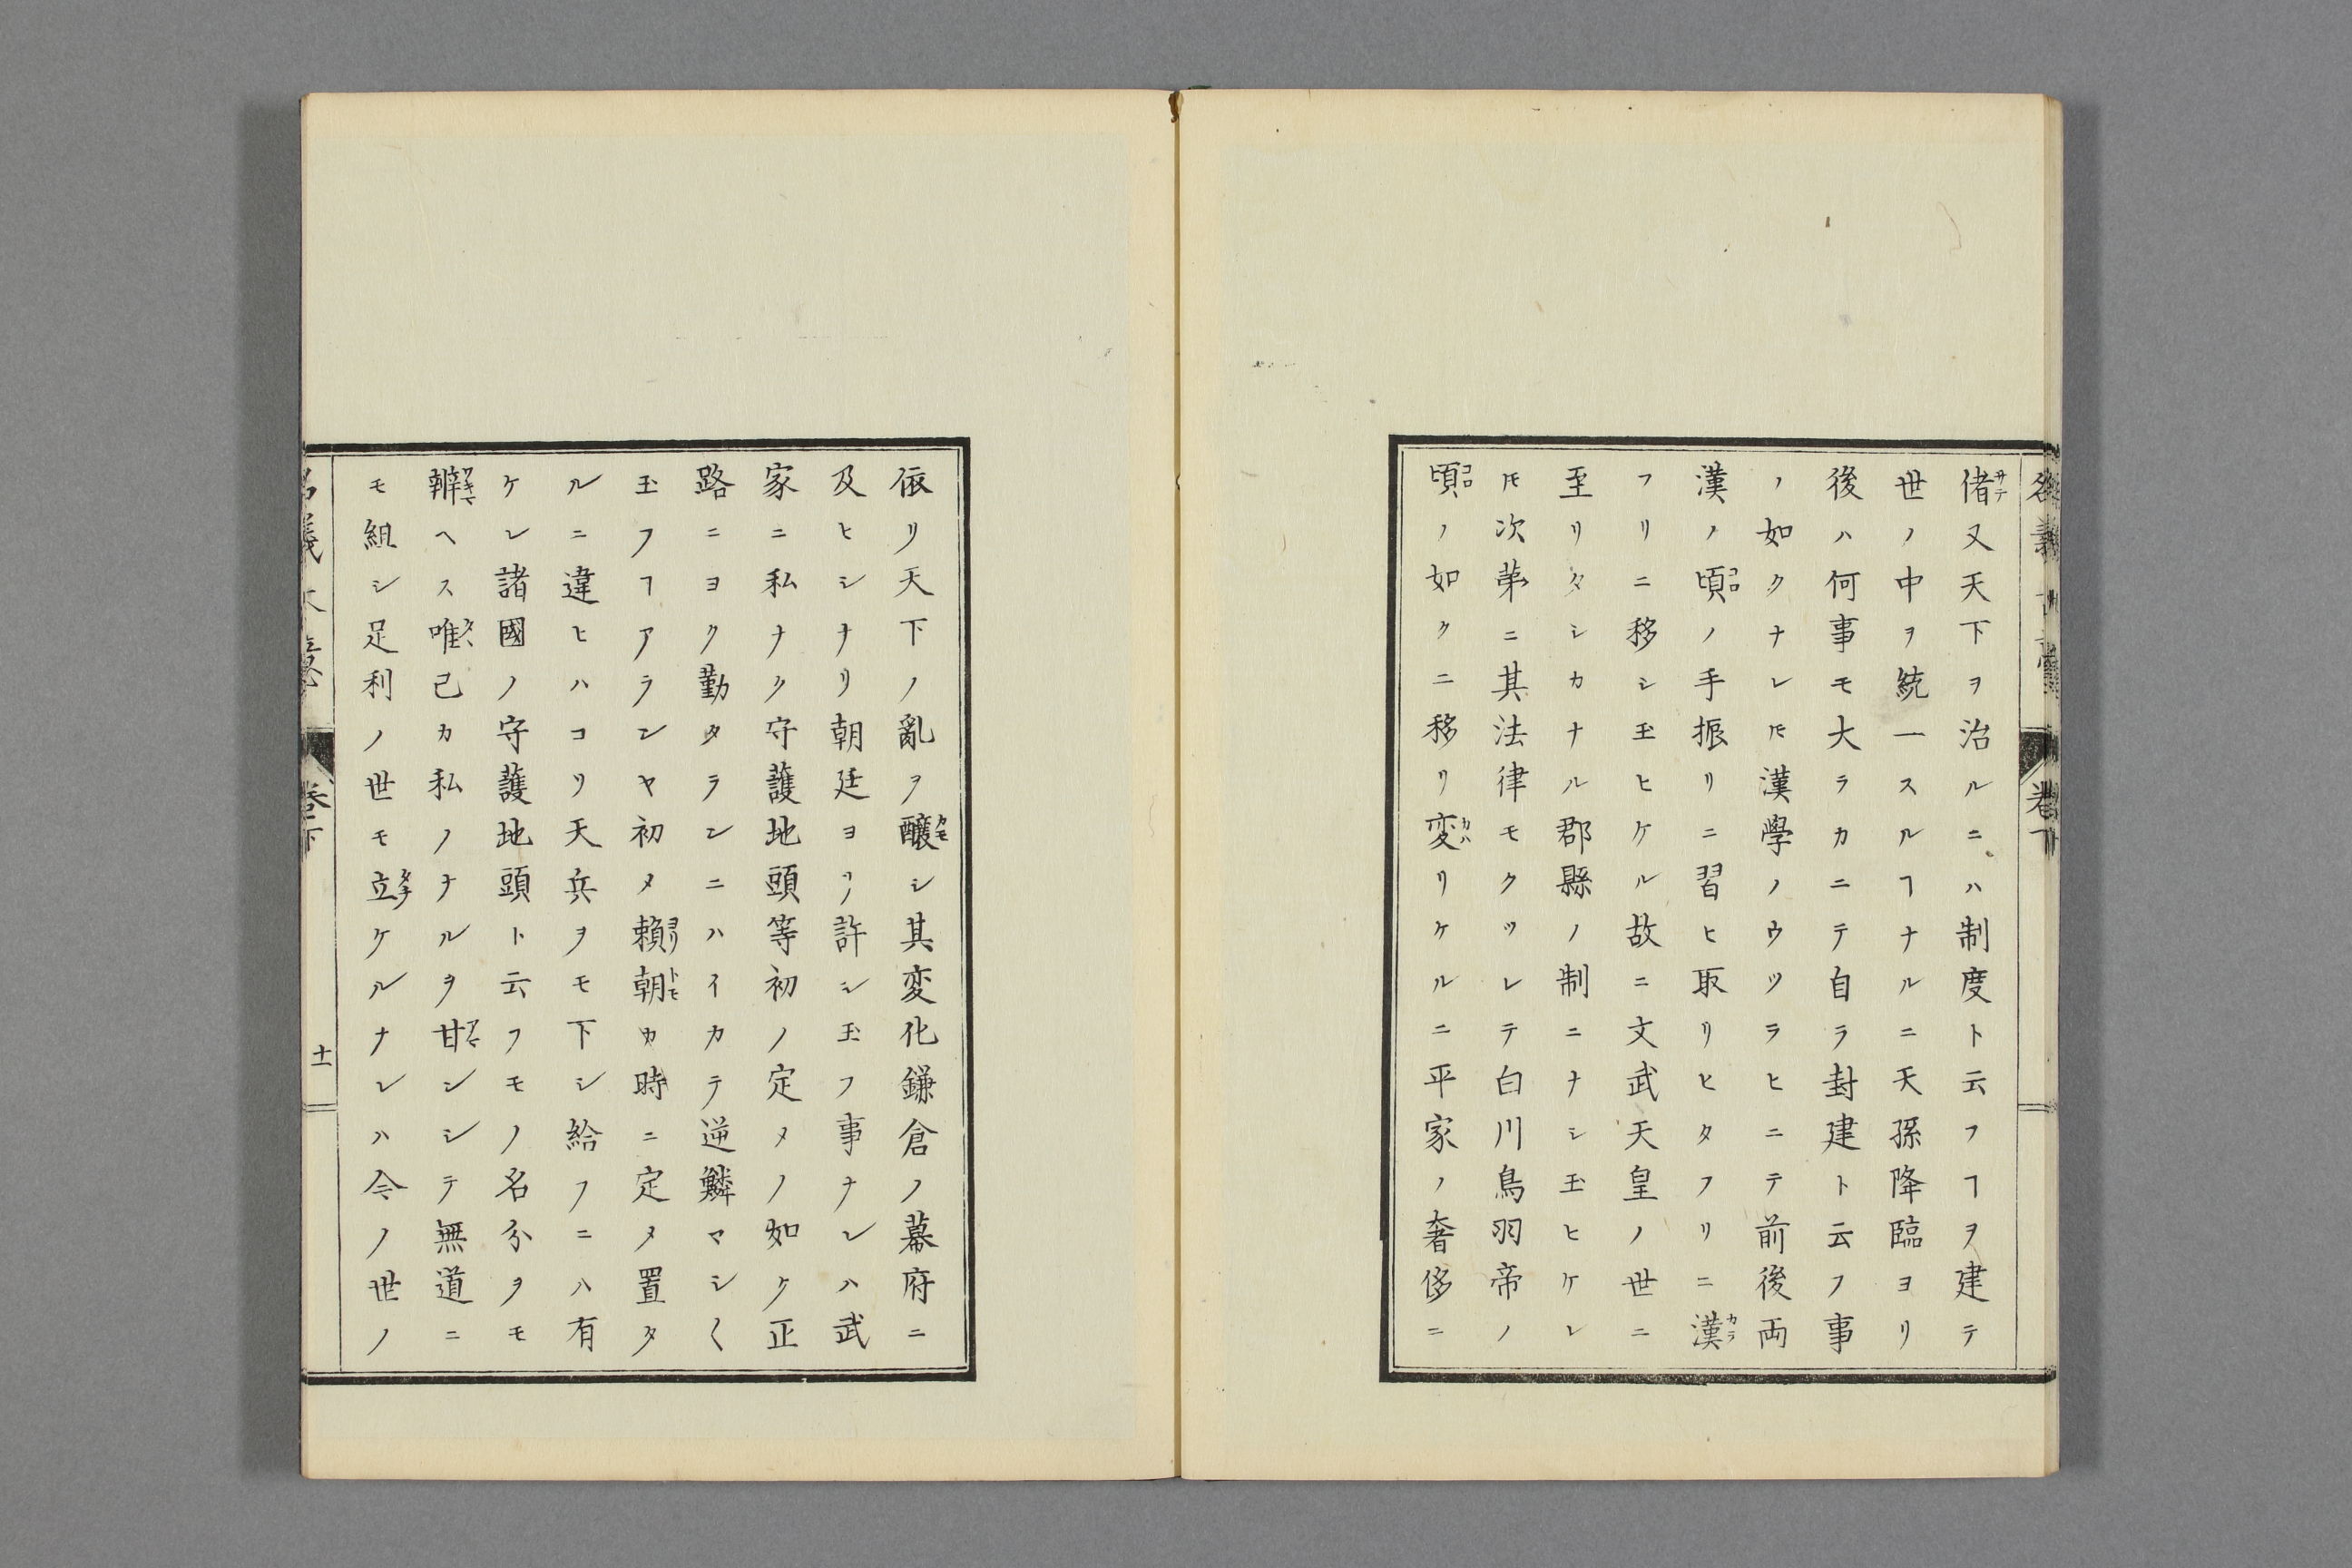 偖又天下ヲ治ルニハ制度ト云フヿヲ建テ
世ノ中ヲ統一スルヿナルニ天孫降臨ヨリ
後ハ何事モ大ラカニテ自ラ封建ト云フ事
ノ如クナレ𪜈漢學ノウツラヒニテ前後両
漢ノ頃ノ手振リニ習ヒ取リヒタフリニ漢
フリニ移シ玉ヒケル故ニ文武天皇ノ世ニ
至リタシカナル郡縣ノ制ニナシ玉ヒケレ
𪜈次第ニ其法律モクツレテ白川鳥羽帝ノ
頃ノ如クニ移リ変リケルニ平家ノ奢侈ニ
依リ天下ノ亂ヲ醸シ其変化鎌倉ノ幕府ニ
及ヒシナリ朝廷ヨリ許シ玉フ事ナレハ武
家ニ私ナク守護地頭等初ノ定メノ如ケ正
路ニヨク勤タランニハイカテ逆鱗マシ〱
玉フヿアランヤ初メ頼朝カ時ニ定メ置タ
ルニ違ヒハコリ天兵ヲモ下シ給フニハ有
ケレ諸國ノ守護地頭ト云フモノノ名分ヲモ
辧ヘス唯己カ私ノナルヲ甘ンシテ無道ニ
モ組シ足利ノ世モ立ケルナレハ今ノ世ノ
卷下
十一